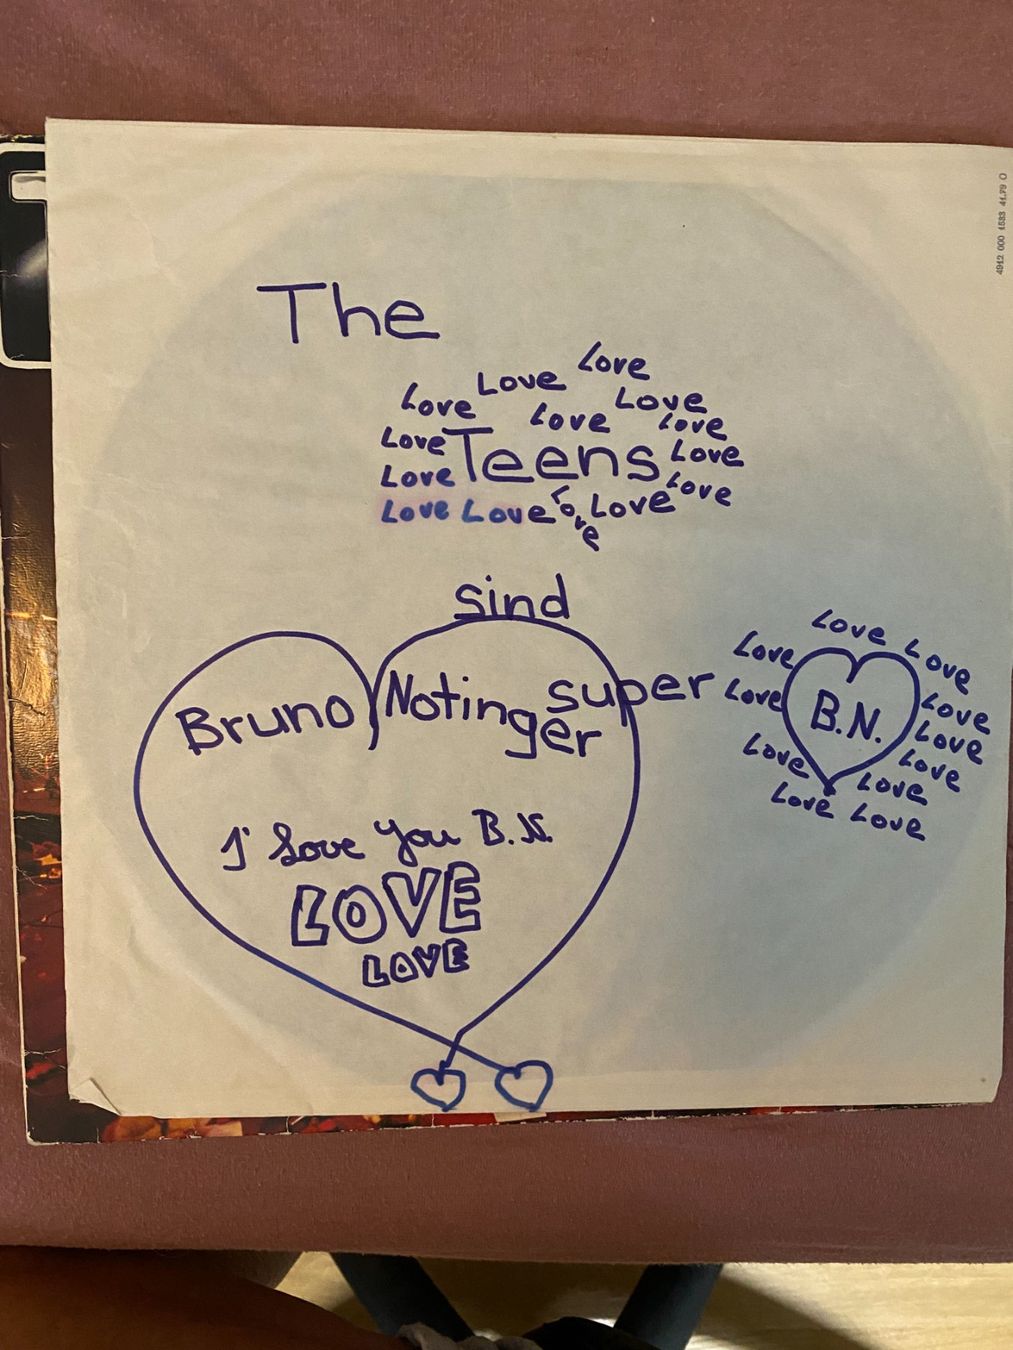 4912 000 1583 41.79 O
The
Love
Love
Love
Love
Love
Love
Love
Love
Teens
Love
Love
Love
Love Love Love Love
sind
super
Bruno Notinger
I Love You B.N.
LOVE
LOVE
Love
Love
Love
Love
B.N.
Love
Love
Love
Love
Love
Love Love